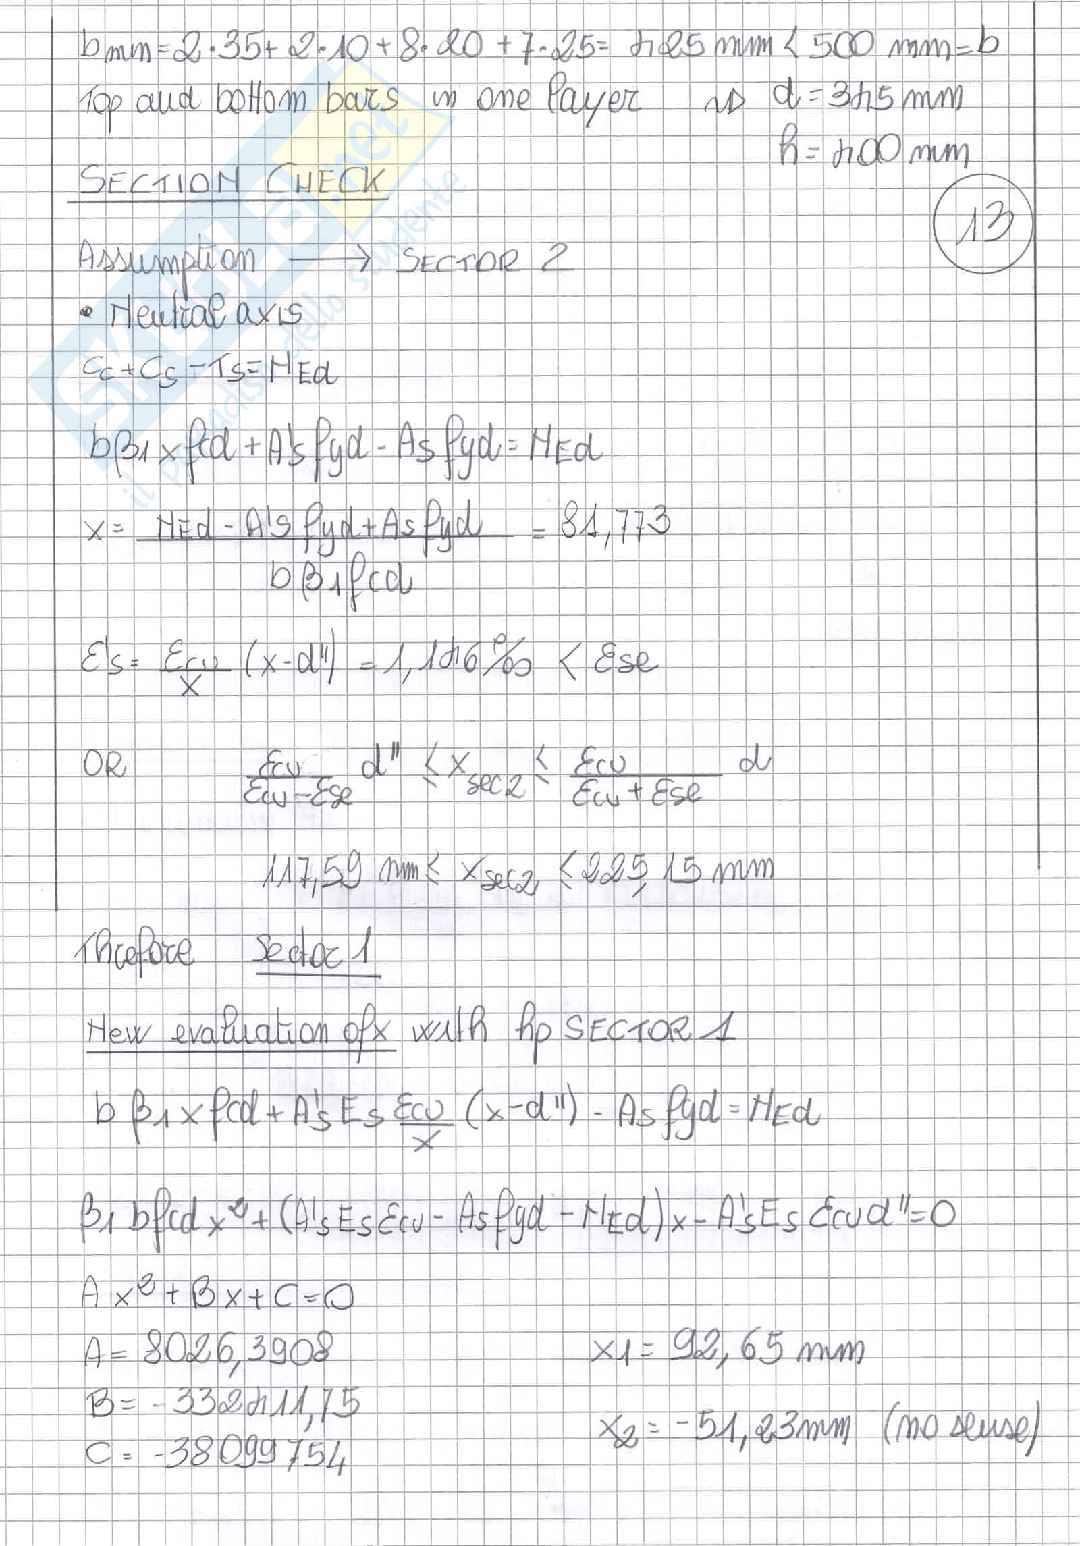 bmm = 2·35 + 2·10 + 8·20 + 7·25 = 425 mm < 500 mm = b
Top and bottom bars in one layer ⇝ d = 345 mm
h = 400 mm
SECTION CHECK
13
Assumption → SECTOR 2
• Neutral axis
Cc + Cs - Ts = NEd
bβ1 x fcd + A's fyd - As fyd = NEd
x = (NEd - A's fyd + As fyd) / (b β1 fcd) = 81,773
ε's = εcu/x (x - d'') = 1,146 ‰ < εse
OR εcu/(εcu - εse) d'' ≤ xsec2 ≤ εcu/(εcu + εse) d
117,59 mm ≤ xsec2 ≤ 225,15 mm
Threfore Sector 1
New evaluation of x with hp SECTOR 1
b β1 x fcd + A's Es εcu/x (x - d'') - As fyd = NEd
β1 b fcd x² + (A's Es εcu - As fyd - NEd) x - A's Es εcu d'' = 0
A x² + B x + C = 0
A = 8026,3908 x1 = 92,65 mm
B = -332411,75
x2 = -51,23 mm (no sense)
C = -38099754
skuola.net
il paradiso dello studente